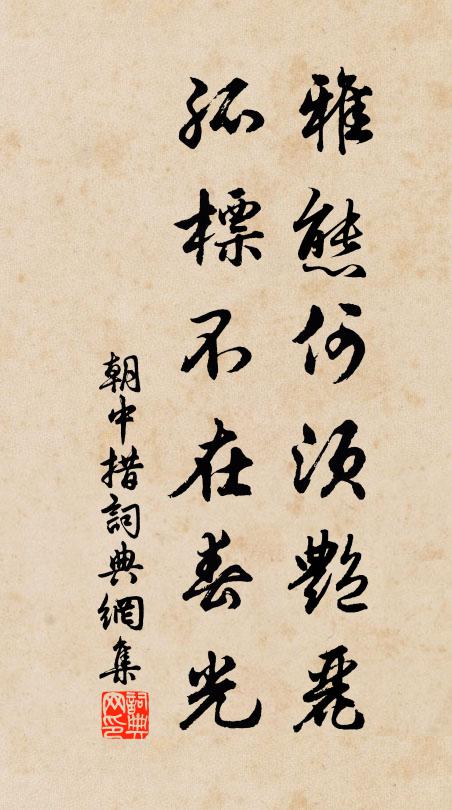 雅態何須艷麗
孤標不在春光
朝中措詞典網集
詞典网印